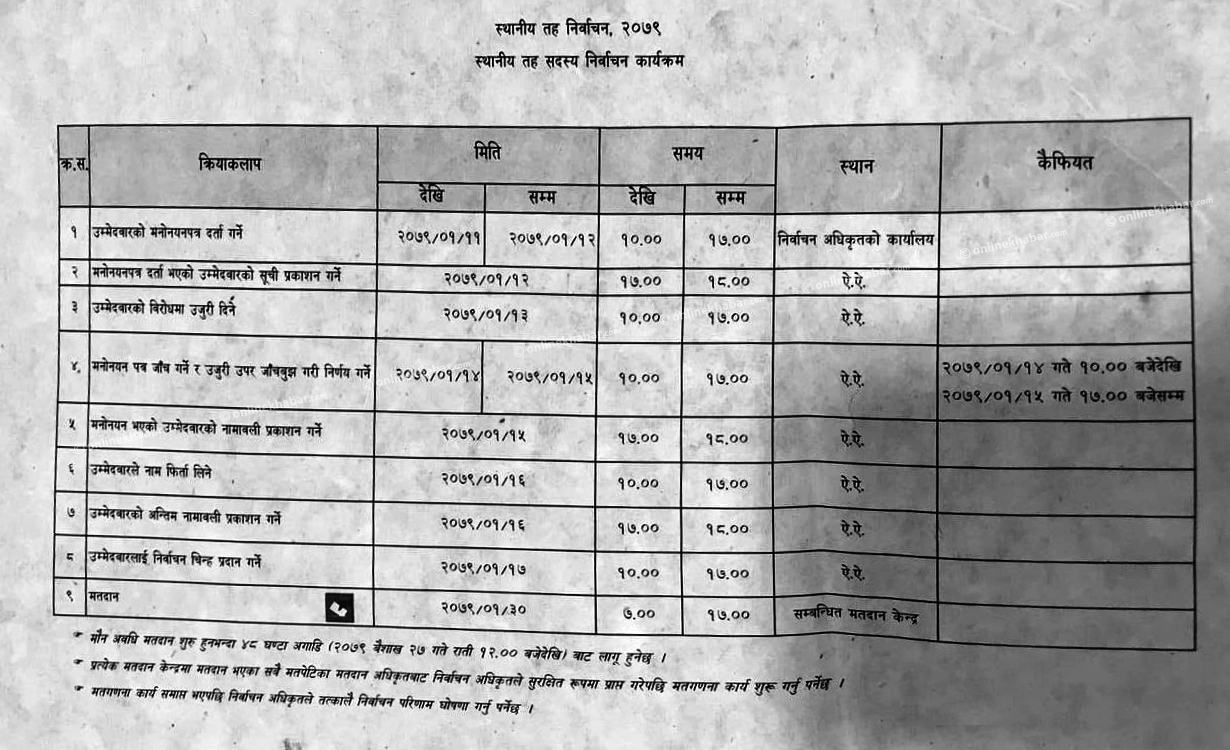 स्थानीय तह निर्वाचन, २०७९
स्थानीय तह सदस्य निर्वाचन कार्यक्रम
क्र.स. क्रियाकलाप मिति समय स्थान कैफियत
देखि सम्म देखि सम्म
१ उम्मेदवारको मनोनयनपत्र दर्ता गर्ने २०७९/०१/११ २०७९/०१/१२ १०.०० १७.०० निर्वाचन अधिकृतको कार्यालय
२ मनोनयनपत्र दर्ता भएको उम्मेदवारको सूची प्रकाशन गर्ने २०७९/०१/१२ १७.०० १८.०० ऐ.ऐ.
३ उम्मेदवारको विरोधमा उजुरी दिने २०७९/०१/१३ १०.०० १७.०० ऐ.ऐ.
४. मनोनयन पत्र जाँच गर्ने र उजुरी उपर जाँचबुझ गरी निर्णय गर्ने २०७९/०१/१४ २०७९/०१/१५ १०.०० १७.०० ऐ.ऐ. २०७९/०१/१४ गते १०.०० बजेदेखि
२०७९/०१/१५ गते १७.०० बजेसम्म
५ मनोनयन भएको उम्मेदवारको नामावली प्रकाशन गर्ने २०७९/०१/१५ १७.०० १८.०० ऐ.ऐ.
६ उम्मेदवारले नाम फिर्ता लिने २०७९/०१/१६ १०.०० १७.०० ऐ.ऐ.
७ उम्मेदवारको अन्तिम नामावली प्रकाशन गर्ने २०७९/०१/१६ १७.०० १८.०० ऐ.ऐ.
८ उम्मेदवारलाई निर्वाचन चिन्ह प्रदान गर्ने २०७९/०१/१७ १०.०० १७.०० ऐ.ऐ.
९ मतदान २०७९/०१/३० ७.०० १७.०० सम्बन्धित मतदान केन्द्र
☞ मौन अवधि मतदान शुरु हुनभन्दा ४८ घण्टा अगाडि (२०७९ बैशाख २७ गते राती १२.०० बजेदेखि) बाट लागू हुनेछ ।
☞ प्रत्येक मतदान केन्द्रमा मतदान भएका सबै मतपेटिका मतदान अधिकृतबाट निर्वाचन अधिकृतले सुरक्षित रूपमा प्राप्त गरेपछि मतगणना कार्य शुरू गर्नु पर्नेछ ।
☞ मतगणना कार्य समाप्त भएपछि निर्वाचन अधिकृतले तत्कालै निर्वाचन परिणाम घोषणा गर्नु पर्नेछ ।
onlinekhabar.com
onlinekhabar.com
onlinekhabar.com